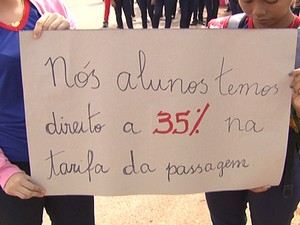 Nós alunos temos
direito a 35% na
tarifa da passagem